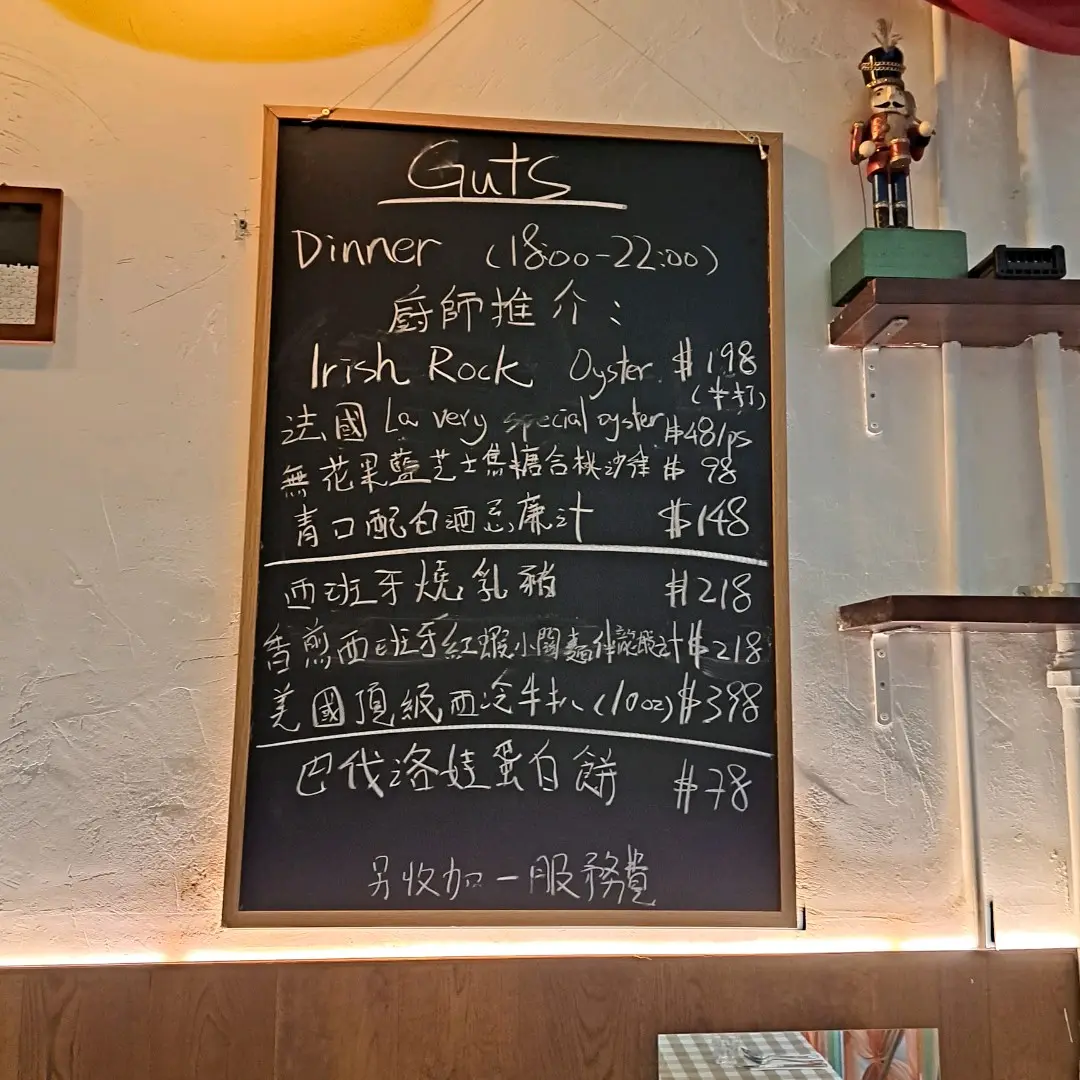 Guts
Dinner (18:00-22:00)
廚師推介：
Irish Rock Oyster $198
(半打)
法國 La very special oyster $48/ps
無花果藍芝士焦糖合桃沙律 $98
青口配白酒忌廉汁 $148
西班牙燒乳豬 $218
香煎西班牙紅蝦小闊麵伴龍蝦汁 $218
美國頂級西冷牛扒 (10oz) $398
巴伐洛娃蛋白餅 $78
另收加一服務費